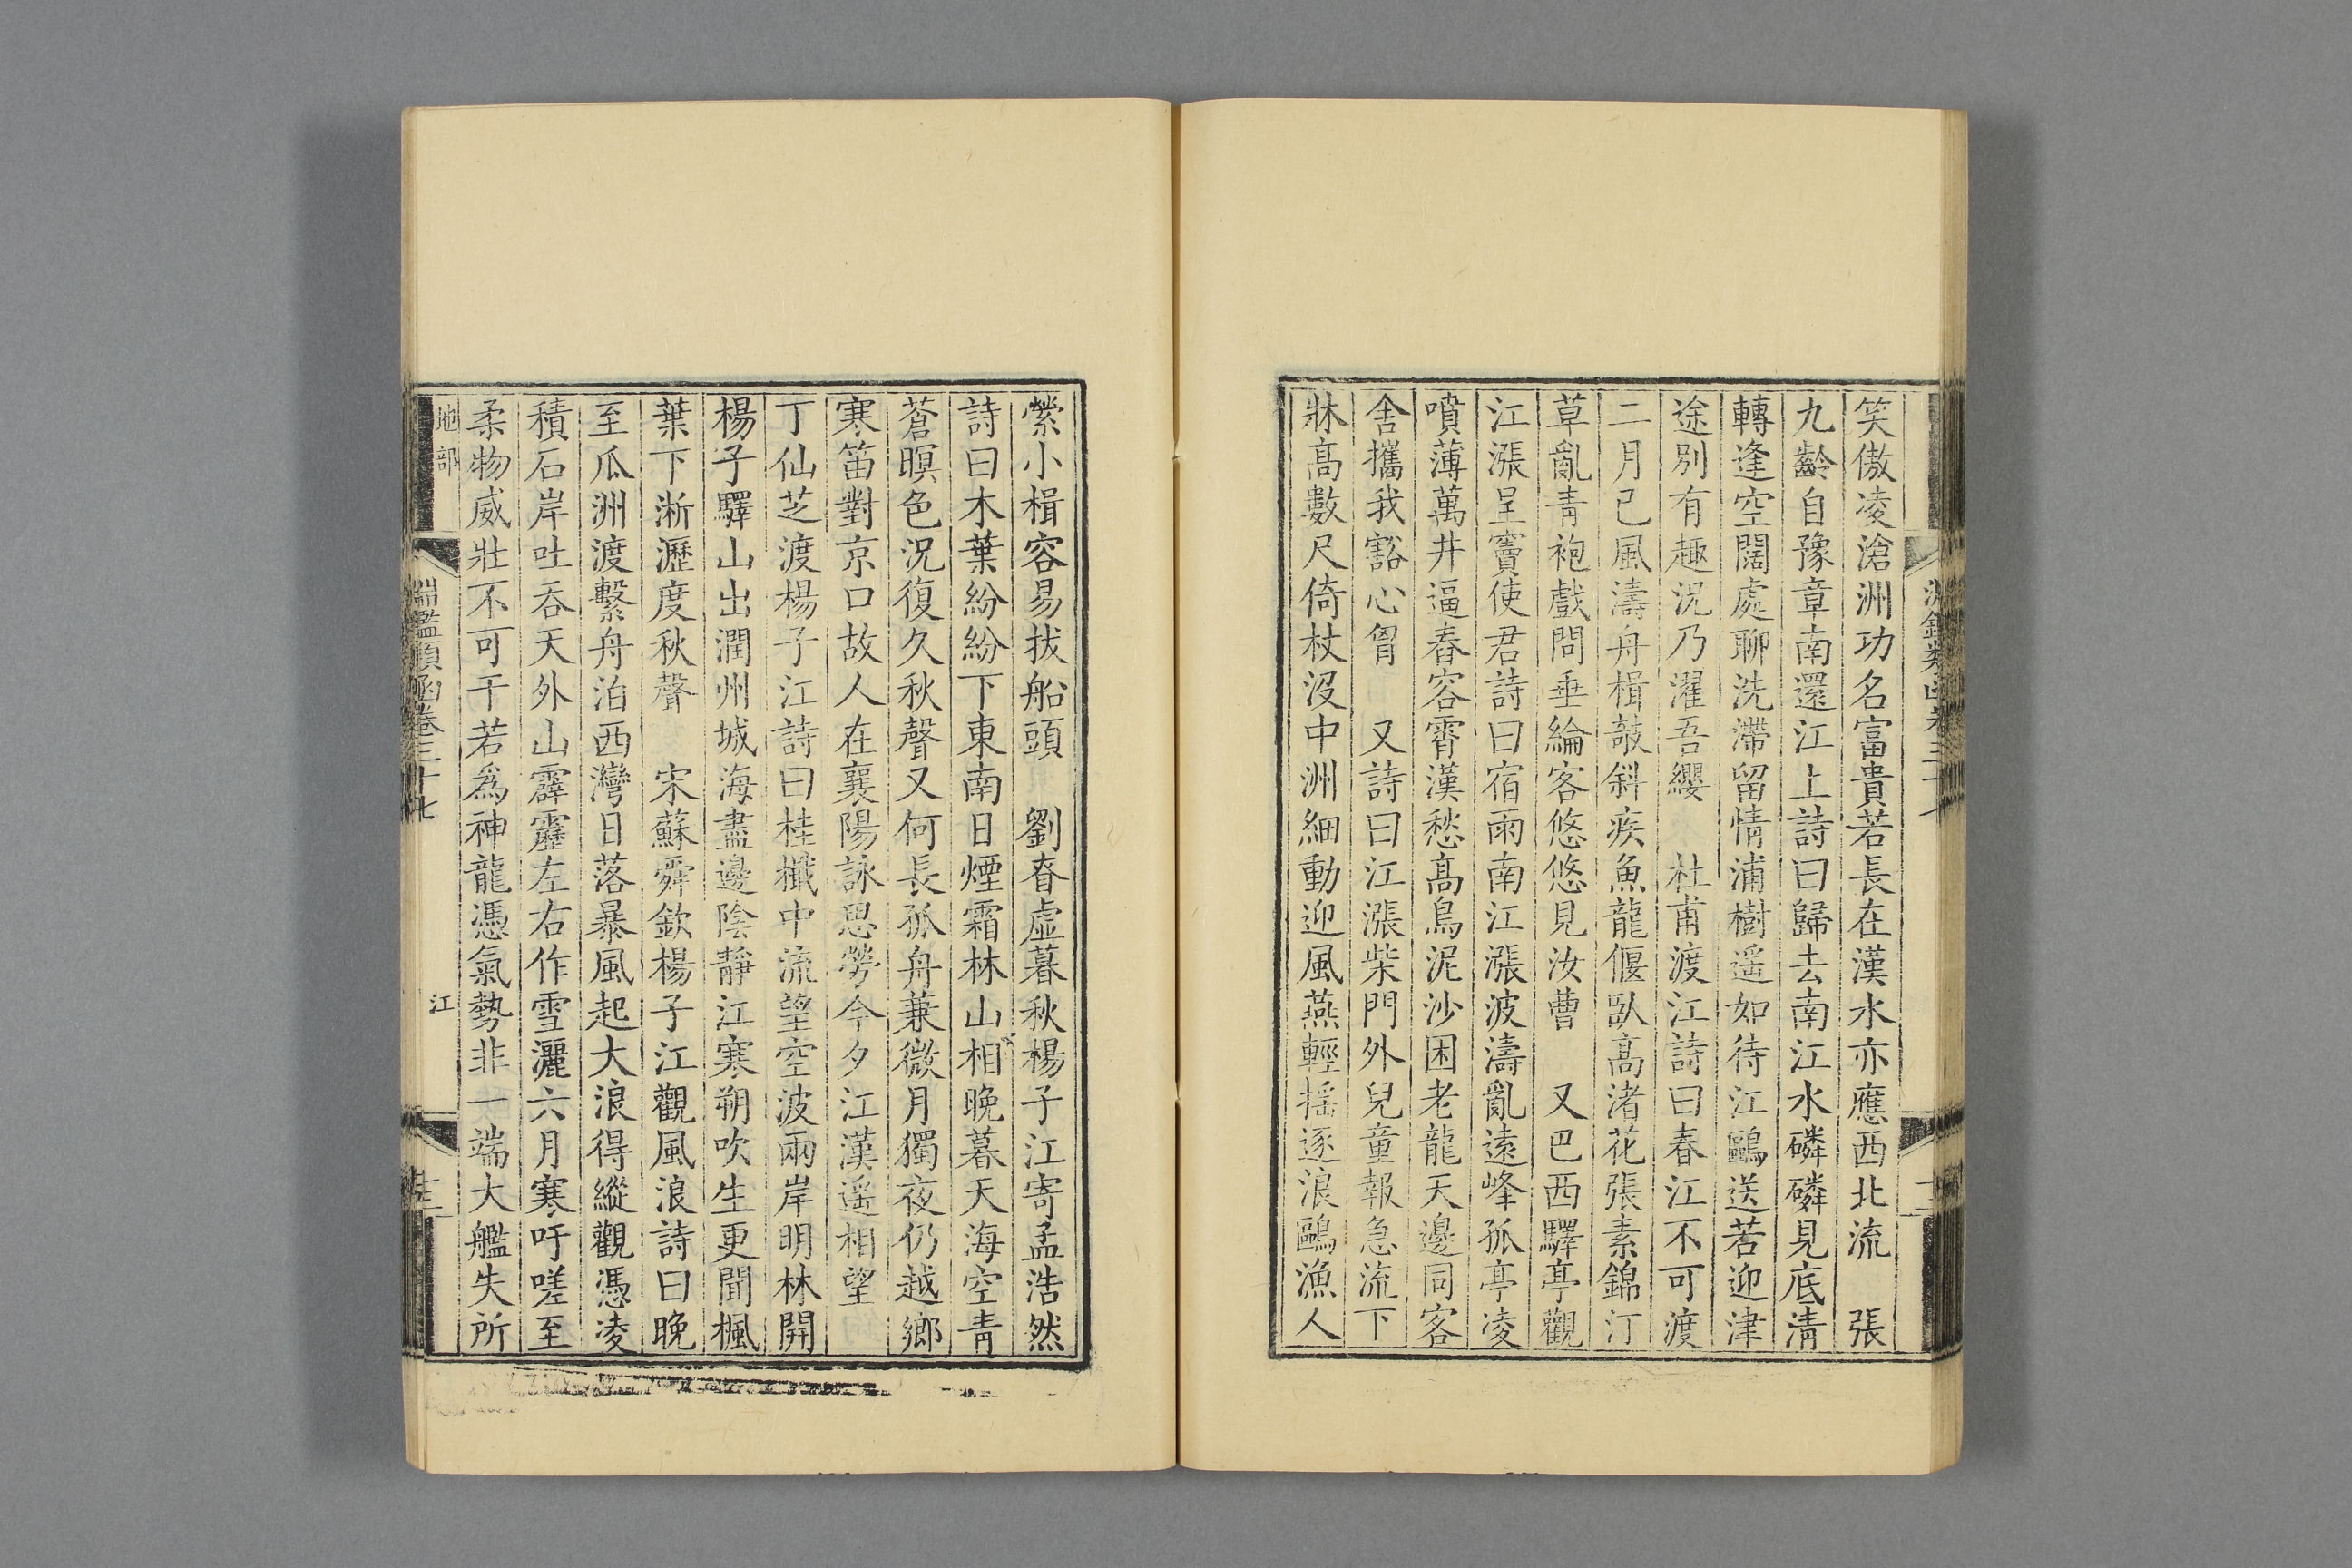 笑傲凌滄洲功名富貴若長在漢水亦應西北流　張
九齡自豫章南還江上詩曰歸去南江水磷磷見底清
轉逢空闊處聊洗滯留情浦樹遥如待江鷗送若迎津
途別有趣況乃濯吾纓　杜甫渡江詩曰春江不可渡
二月已風濤舟楫敧斜疾魚龍偃臥高渚花張素錦汀
草亂青袍戲問垂綸客悠悠見汝曹　又巴西驛亭觀
江漲呈竇使君詩曰宿雨南江漲波濤亂遠峰孤亭凌
噴薄萬井逼舂容霄漢愁高鳥泥沙困老龍天邊同客
舍攜我豁心胷　又詩曰江漲柴門外兒童報急流下
牀高數尺倚杖沒中洲細動迎風燕輕搖逐浪鷗漁人
縈小楫容易拔船頭　劉眘虛暮秋楊子江寄孟浩然
詩曰木葉紛紛下東南日煙霜林山相晚暮天海空青
蒼暝色況復久秋聲又何長孤舟兼微月獨夜仍越鄉
寒笛對京口故人在襄陽詠思勞今夕江漢遥相望
丁仙芝渡楊子江詩曰桂檝中流望空波兩岸明林開
楊子驛山出潤州城海盡邊陰靜江寒朔吹生更聞楓
葉下淅瀝度秋聲　宋蘇舜欽楊子江觀風浪詩曰晚
至瓜洲渡繫舟泊西灣日落暴風起大浪得縱觀憑凌
積石岸吐吞天外山霹靂左右作雪灑六月寒吁嗟至
柔物威壯不可干若爲神龍憑氣勢非一端大艦失所
地部　淵鑑類函卷三十七　江